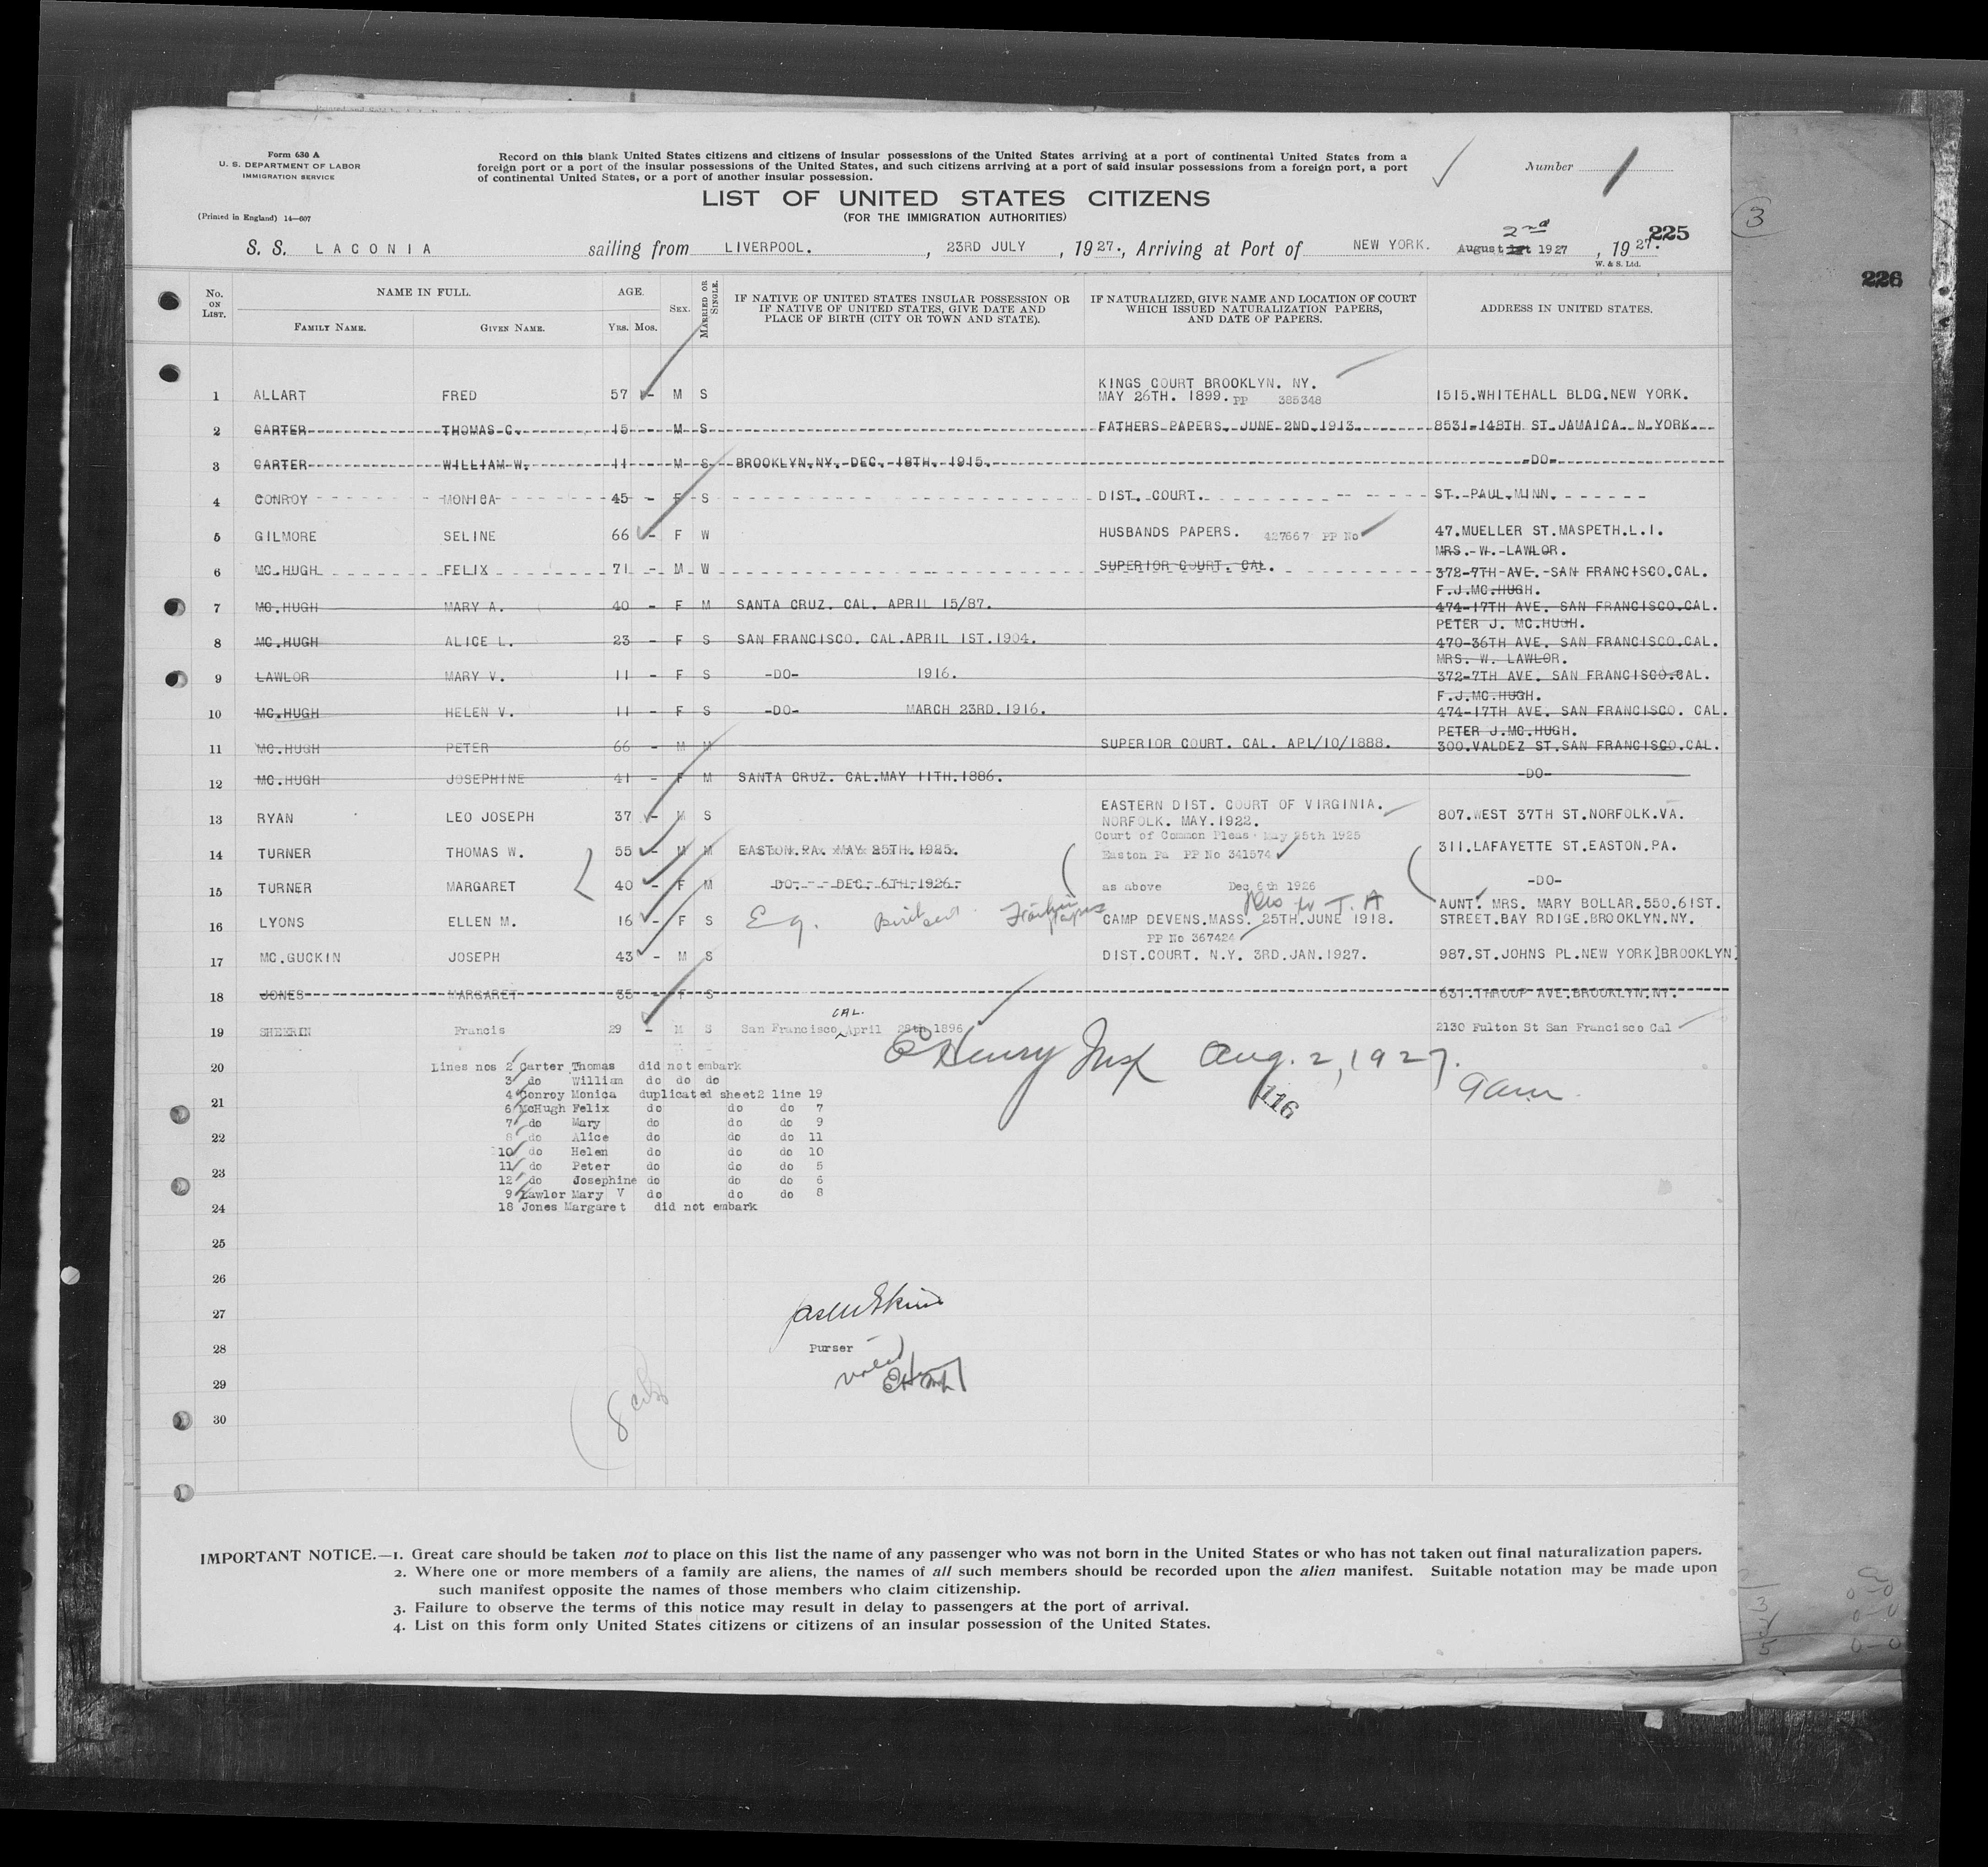 Form 630 A
U. S. DEPARTMENT OF LABOR
IMMIGRATION SERVICE
(Printed in England) 14—607
Record on this blank United States citizens and citizens of insular possessions of the United States arriving at a port of continental United States from a
foreign port or a port of the insular possessions of the United States, and such citizens arriving at a port of said insular possessions from a foreign port, a port
of continental United States, or a port of another insular possession.
LIST OF UNITED STATES CITIZENS
(FOR THE IMMIGRATION AUTHORITIES)
Number 1
3
225
226
S. S. LACONIA sailing from LIVERPOOL. , 23RD JULY , 1927., Arriving at Port of NEW YORK. 2nd August 1st 1927 , 1927.
W. & S. Ltd.
No. ON LIST. NAME IN FULL. FAMILY NAME. GIVEN NAME. AGE. YRS. MOS. SEX. MARRIED OR SINGLE. IF NATIVE OF UNITED STATES INSULAR POSSESSION OR IF NATIVE OF UNITED STATES, GIVE DATE AND PLACE OF BIRTH (CITY OR TOWN AND STATE). IF NATURALIZED, GIVE NAME AND LOCATION OF COURT WHICH ISSUED NATURALIZATION PAPERS, AND DATE OF PAPERS. ADDRESS IN UNITED STATES.
KINGS COURT BROOKLYN. NY.
1 ALLART FRED 57 - M S MAY 26TH. 1899. PP 385348 1515.WHITEHALL BLDG.NEW YORK.
2 CARTER THOMAS C. 15 M S FATHERS PAPERS. JUNE 2ND.1913. 8531-148TH ST.JAMAICA. N.YORK.
3 CARTER WILLIAM W. 11 M S BROOKLYN.NY. DEC. 18TH. 1915. -DO-
4 CONROY MONICA 45 - F S DIST. COURT. ST. PAUL.MINN.
5 GILMORE SELINE 66 - F W HUSBANDS PAPERS. 427667 PP No 47.MUELLER ST.MASPETH.L.I.
MRS. W. LAWLOR.
6 MC.HUGH FELIX 71 - M W SUPERIOR COURT. CAL. 372-7TH AVE. SAN FRANCISCO.CAL.
F.J.MC.HUGH.
7 MC.HUGH MARY A. 40 - F M SANTA CRUZ. CAL. APRIL 15/87. 474-17TH AVE. SAN FRANCISCO.CAL.
PETER J. MC.HUGH.
8 MC.HUGH ALICE L. 23 - F S SAN FRANCISCO. CAL.APRIL 1ST.1904. 470-36TH AVE. SAN FRANCISCO.CAL.
MRS. W. LAWLOR.
9 LAWLOR MARY V. 11 - F S -DO- 1916. 372-7TH AVE. SAN FRANCISCO.CAL.
F.J.MC.HUGH.
10 MC.HUGH HELEN V. 11 - F S -DO- MARCH 23RD.1916. 474-17TH AVE. SAN FRANCISCO. CAL.
PETER J.MC.HUGH.
11 MC.HUGH PETER 66 - M M SUPERIOR COURT. CAL. APL/10/1888. 300.VALDEZ ST.SAN FRANCISCO.CAL.
12 MC.HUGH JOSEPHINE 41 - F M SANTA CRUZ. CAL.MAY 11TH.1886. -DO-
EASTERN DIST. COURT OF VIRGINIA.
13 RYAN LEO JOSEPH 37 - M S NORFOLK. MAY.1922. 807.WEST 37TH ST.NORFOLK.VA.
Court of Common Pleas May 25th 1925
14 TURNER THOMAS W. 55 - M M EASTON.PA. MAY 25TH.1925. Easton Pa PP No 341574 311.LAFAYETTE ST.EASTON.PA.
15 TURNER MARGARET 40 - F M -DO- DEC. 6TH.1926. as above Dec 6th 1926 -DO-
AUNT. MRS. MARY BOLLAR.550.61ST.
16 LYONS ELLEN M. 16 - F S CAMP DEVENS.MASS. 25TH.JUNE 1918. STREET.BAY RDIGE.BROOKLYN.NY.
PP No 367424
17 MC.GUCKIN JOSEPH 43 - M S DIST.COURT. N.Y. 3RD.JAN.1927. 987.ST.JOHNS PL.NEW YORK]BROOKLYN]
18 JONES MARGARET 35 - F S 631.THROOP AVE.BROOKLYN.NY.
CAL.
19 SHEERIN Francis 29 - M S San Francisco April 28th 1896 2130 Fulton St San Francisco Cal
E Henry Insp Aug. 2, 1927.
9 am
116
20
21
22
23
24
25
26
27
28
29
30
Lines nos 2 Carter Thomas did not embark
3 do William do do do
4 Conroy Monica duplicated sheet2 line 19
6 McHugh Felix do do do 7
7 do Mary do do do 9
8 do Alice do do do 11
10 do Helen do do do 10
11 do Peter do do do 5
12 do Josephine do do do 6
9 Lawlor Mary V do do do 8
18 Jones Margaret did not embark
Purser
IMPORTANT NOTICE.—1. Great care should be taken not to place on this list the name of any passenger who was not born in the United States or who has not taken out final naturalization papers.
2. Where one or more members of a family are aliens, the names of all such members should be recorded upon the alien manifest. Suitable notation may be made upon
such manifest opposite the names of those members who claim citizenship.
3. Failure to observe the terms of this notice may result in delay to passengers at the port of arrival.
4. List on this form only United States citizens or citizens of an insular possession of the United States.